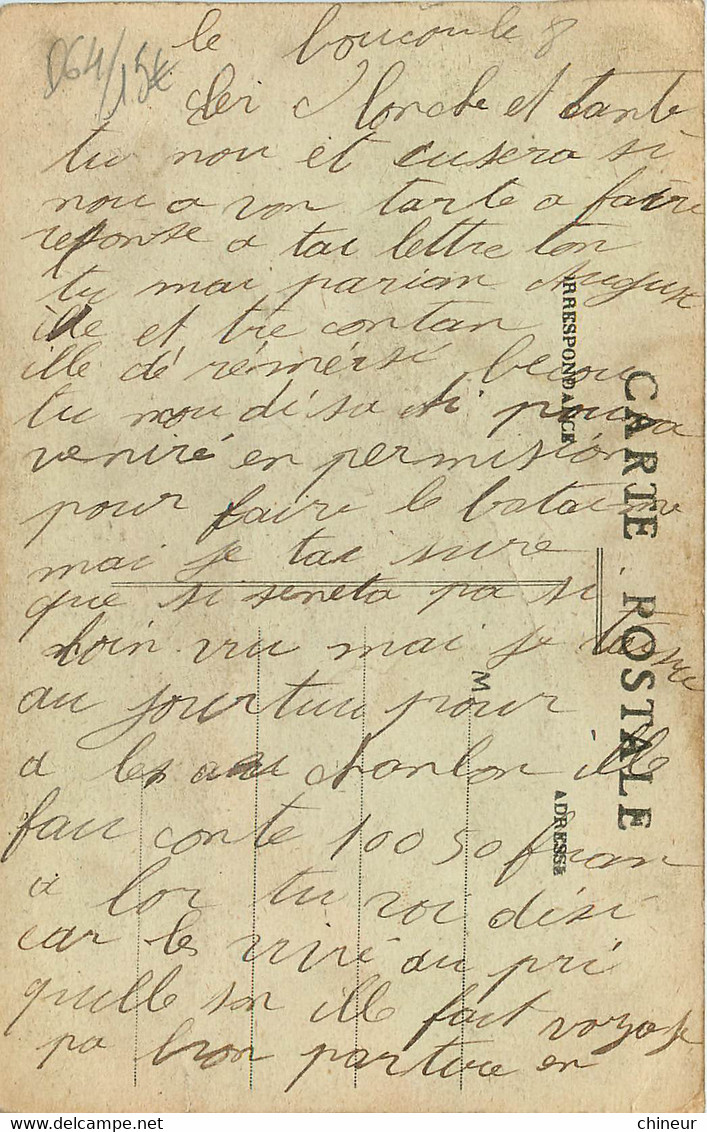 le boucou le 8
D64/15€
cher oncle et tante
tu nou et cusera si
nou a von tarte a faire
reponse a tai lettre ton
tu mai parian Auguste
ille et tre contan
ille dé rémérsi beaucou
tu nou di sa si poura
veniré en permisión
pour faire le bataime
mai je tai sure
que si seneta pa si
loin vu mai je tasure
au jourtui pour
a les au chanlon ille
fau conte 100 50 fran
a lor tu voi dési
car les vivré au pri
quelle son ille fait voyage
pa bon parture en
CARTE POSTALE
CORRESPONDANCE
ADRESSE
M
chineur